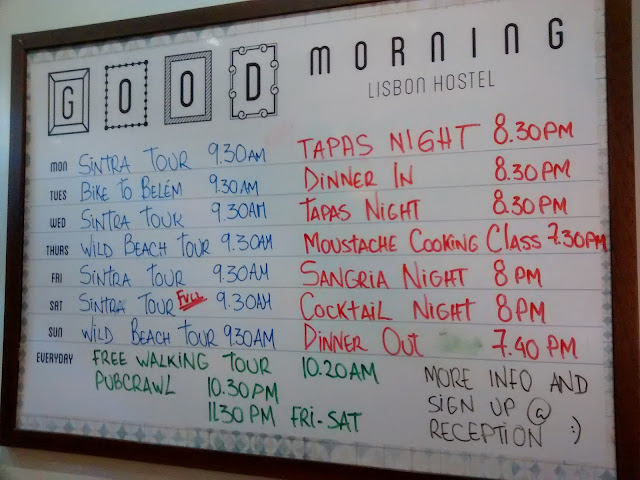 GOOD MORNING
LISBON HOSTEL
MON SINTRA TOUR 9.30AM TAPAS NIGHT 8.30PM
TUES BIKE TO BELÉM 9.30AM DINNER IN 8.30PM
WED SINTRA TOUR 9.30AM TAPAS NIGHT 8.30PM
THURS WILD BEACH TOUR 9.30AM MOUSTACHE COOKING CLASS 7.30PM
FRI SINTRA TOUR 9.30AM SANGRIA NIGHT 8PM
SAT SINTRA TOUR FULL 9.30AM COCKTAIL NIGHT 8PM
SUN WILD BEACH TOUR 9.30AM DINNER OUT 7.40PM
EVERYDAY FREE WALKING TOUR 10.20AM
PUBCRAWL 10.30PM
11.30PM FRI-SAT
MORE INFO AND
SIGN UP @
RECEPTION :)